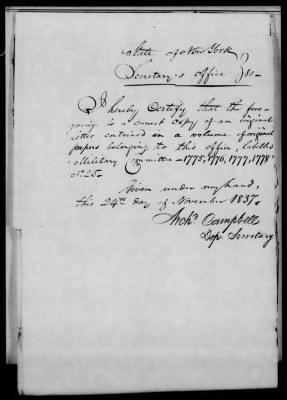 State of New York
Secretary's office } ss-
I hereby Certify that the fore-
going is a correct Copy of an original
letter contained in a volume of original
papers belonging to this office, labelled
"Military Committee - 1775, 1776, 1777, 1778
No. 25"
Given under my hand,
this 24th day of November 1837.
Archd. Campbell
Dep. Secretary